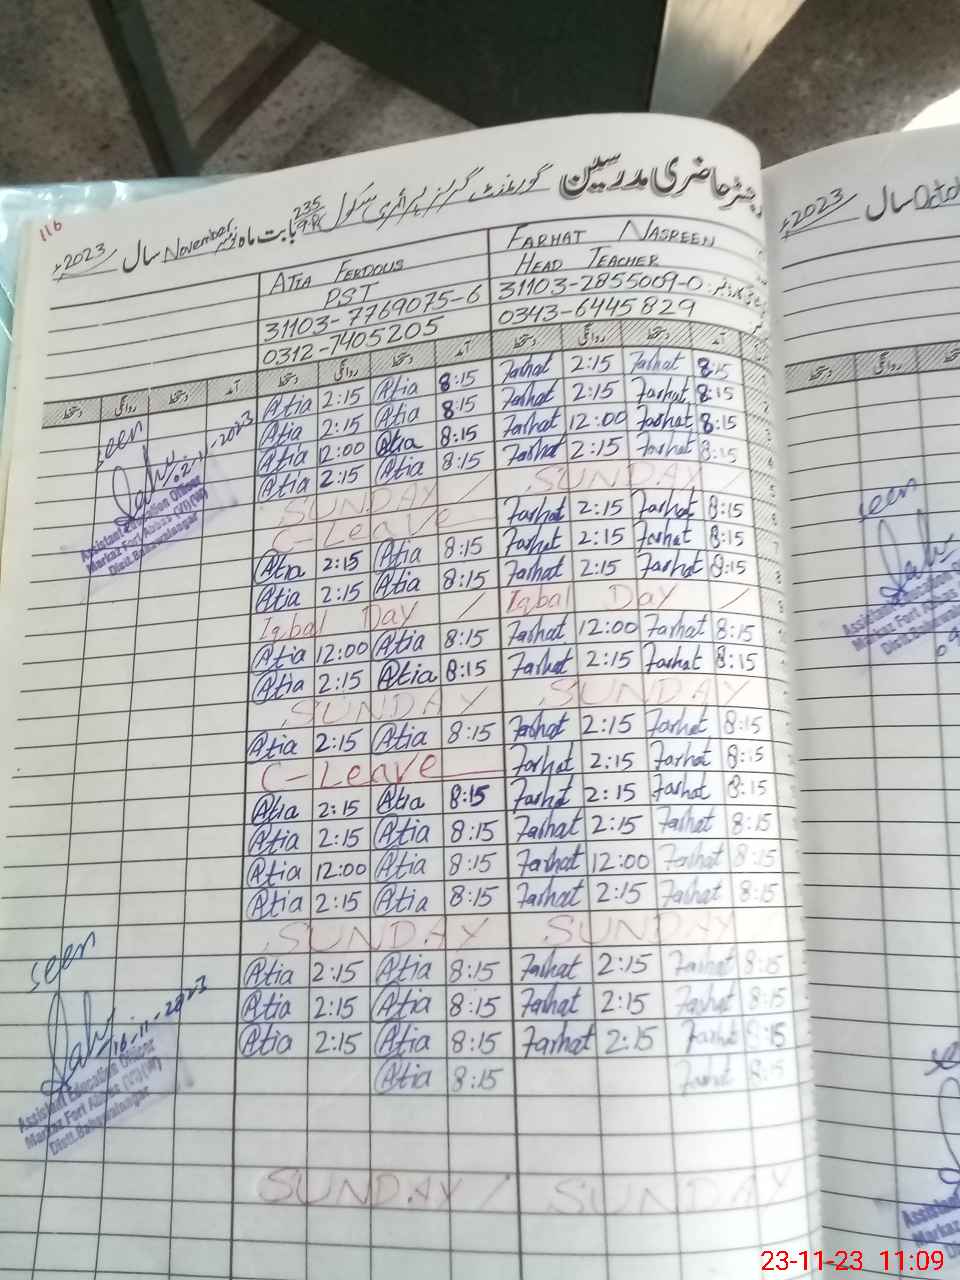 رجسٹر حاضری مدرسین گورنمنٹ گرلز پرائمری سکول 235/9R بابت ماہ نومبر November سال 2023ء
116
ATIA FERDOUS FARHAT NASREEN
PST HEAD TEACHER
31103-7769075-6 31103-2855009-0
0312-7405205 0343-6445829
دستخط روانگی دستخط آمد دستخط روانگی دستخط آمد دستخط روانگی دستخط آمد
Atia 2:15 Atia 8:15 Farhat 2:15 Farhat 8:15
Atia 2:15 Atia 8:15 Farhat 2:15 Farhat 8:15
Atia 12:00 Atia 8:15 Farhat 12:00 Farhat 8:15
Atia 2:15 Atia 8:15 Farhat 2:15 Farhat 8:15
SUNDAY / SUNDAY /
C-Leave Farhat 2:15 Farhat 8:15
Atia 2:15 Atia 8:15 Farhat 2:15 Farhat 8:15
Atia 2:15 Atia 8:15 Farhat 2:15 Farhat 8:15
Iqbal Day / Iqbal Day /
Atia 12:00 Atia 8:15 Farhat 12:00 Farhat 8:15
Atia 2:15 Atia 8:15 Farhat 2:15 Farhat 8:15
SUNDAY SUNDAY
Atia 2:15 Atia 8:15 Farhat 2:15 Farhat 8:15
C-Leave Farhat 2:15 Farhat 8:15
Atia 2:15 Atia 8:15 Farhat 2:15 Farhat 8:15
Atia 2:15 Atia 8:15 Farhat 2:15 Farhat 8:15
Atia 12:00 Atia 8:15 Farhat 12:00 Farhat 8:15
Atia 2:15 Atia 8:15 Farhat 2:15 Farhat 8:15
SUNDAY SUNDAY
Atia 2:15 Atia 8:15 Farhat 2:15 Farhat 8:15
Atia 2:15 Atia 8:15 Farhat 2:15 Farhat 8:15
Atia 2:15 Atia 8:15 Farhat 2:15 Farhat 8:15
Atia 8:15 Farhat 8:15
SUNDAY / SUNDAY
seen
02-11-2023
Assistant Education Officer
Markaz Fort Abbas (VI)(W)
Distt.Bahawalnagar
seen
16-11-2023
Assistant Education Officer
Markaz Fort Abbas (VI)(W)
Distt.Bahawalnagar
2023ء سال Octob
دستخط روانگی دستخط
seen
Assistant Education
Markaz Fort Abbas
Distt.Bahawal
Assistant
Markaz
Distt
23-11-23 11:09